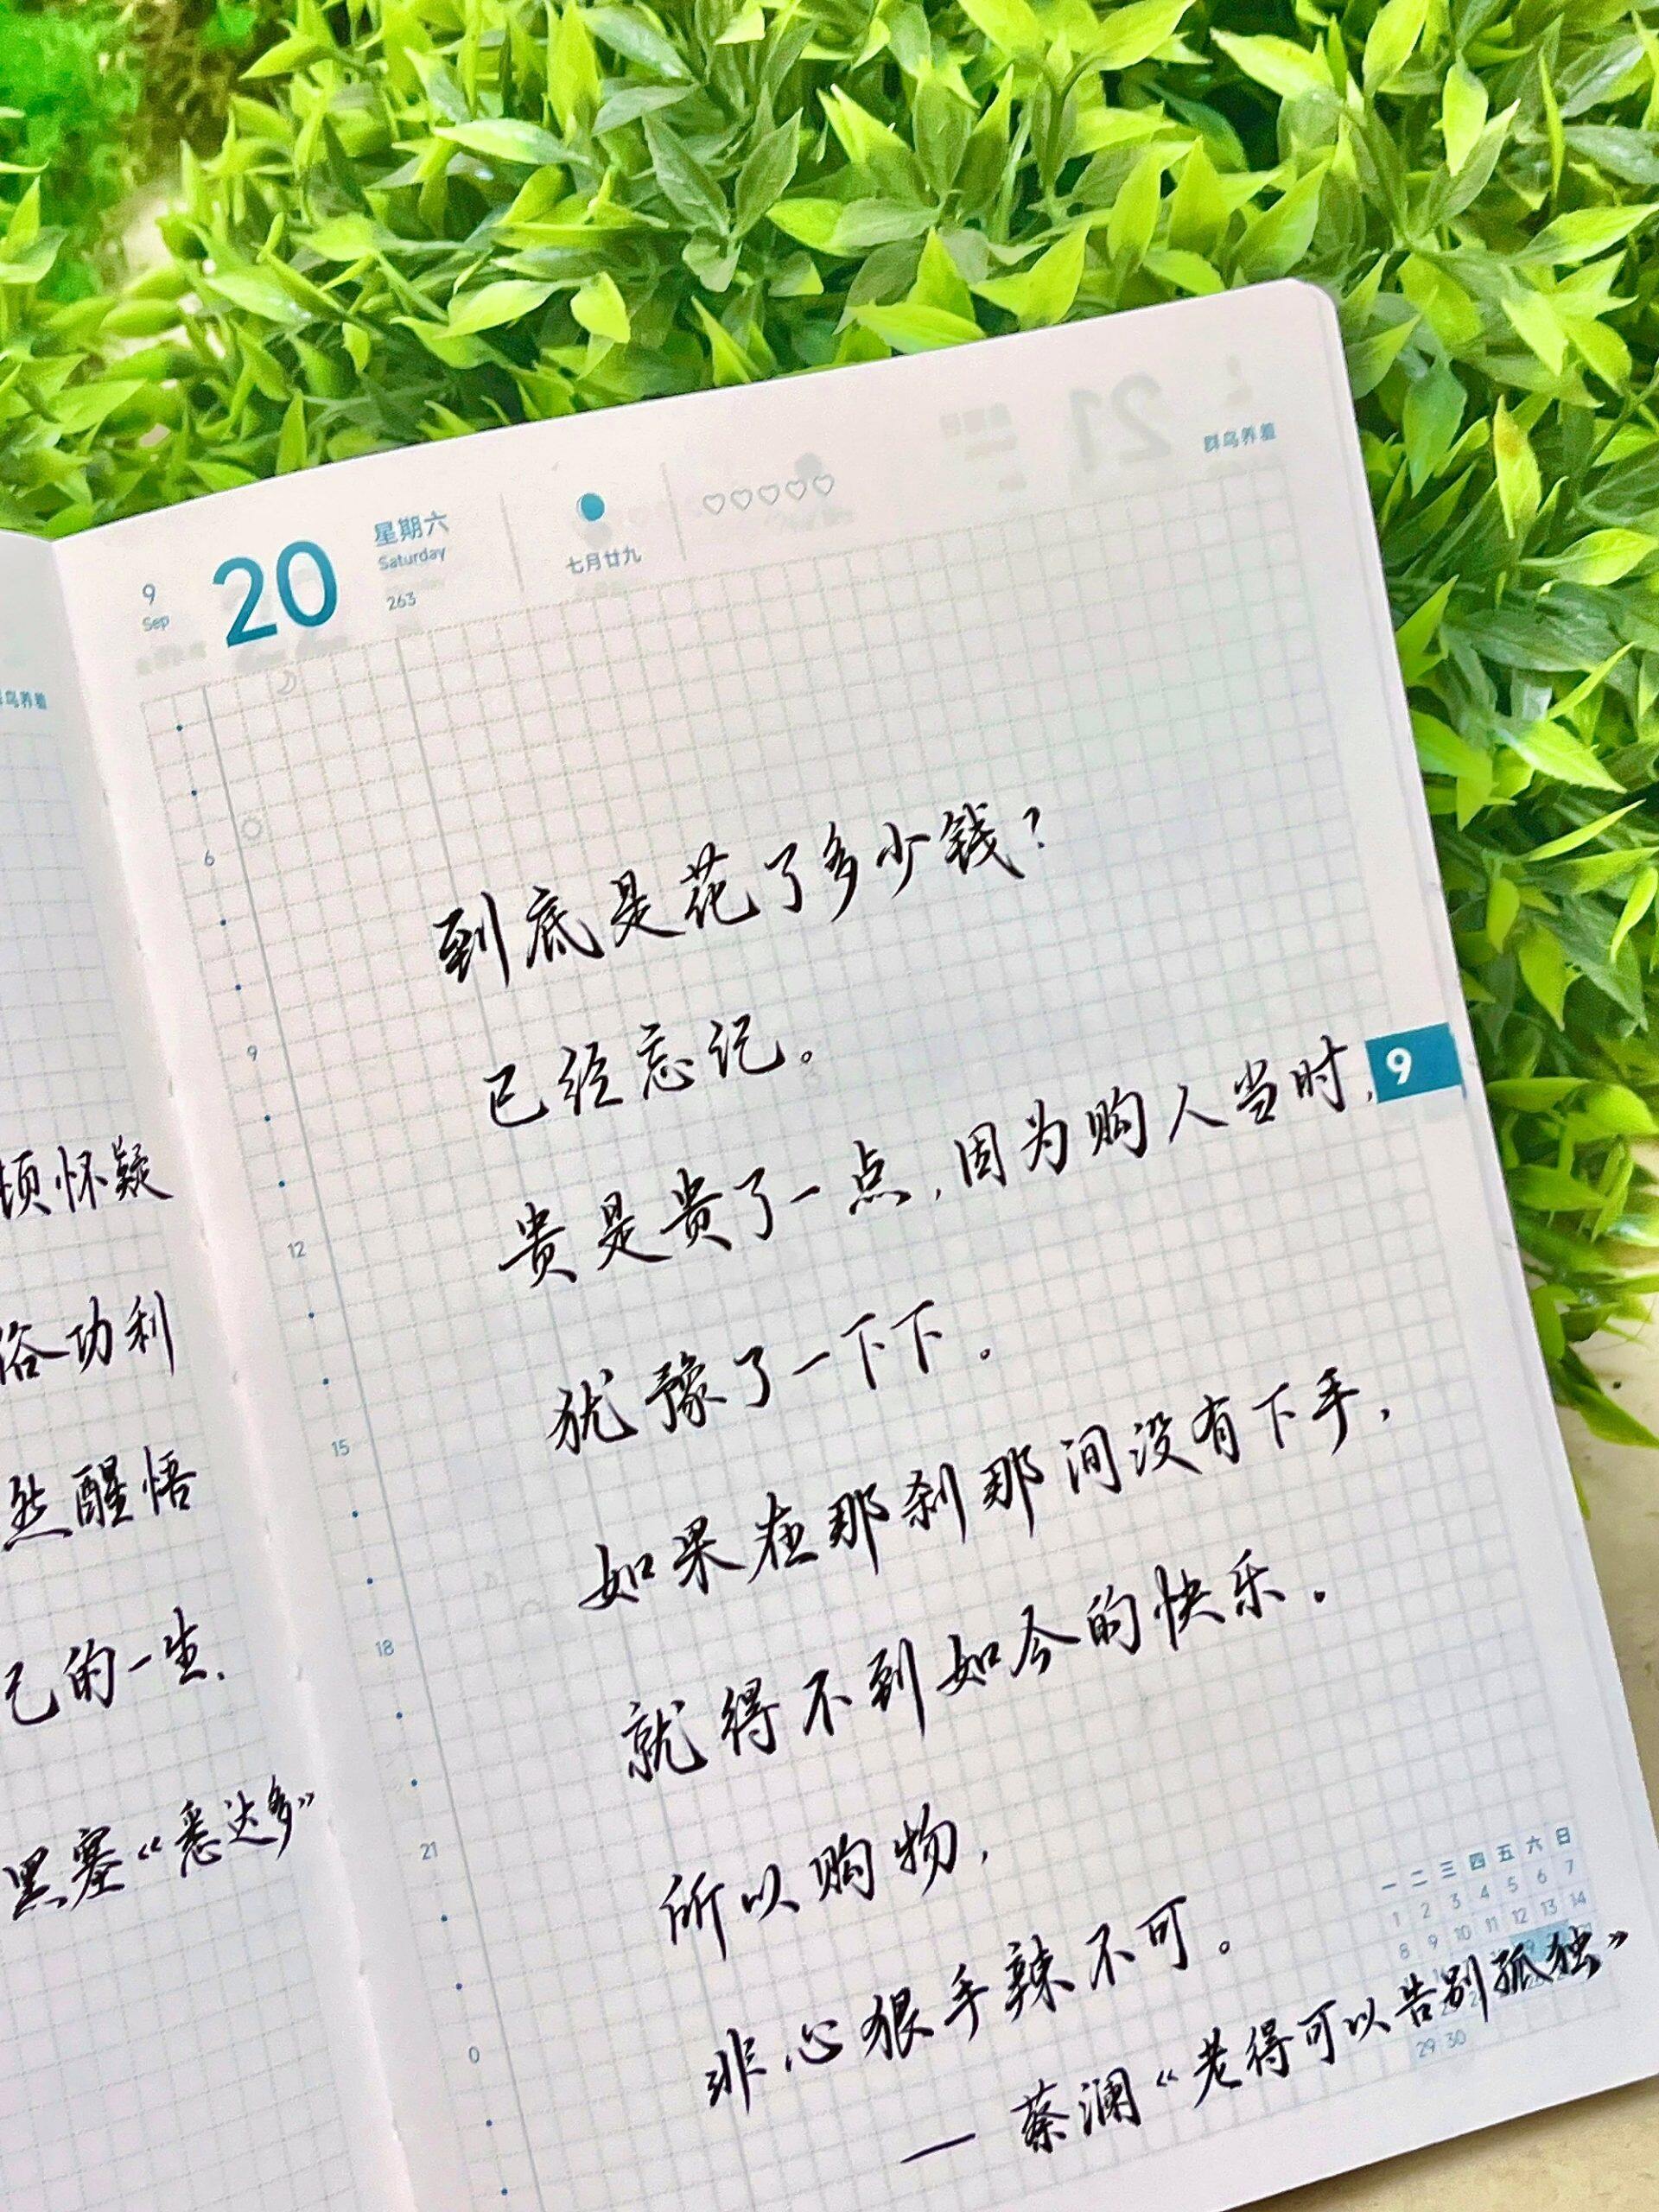 9
Sep
20
星期六
Saturday
263
七月廿九
群鸟养羞
到底是花了多少钱？
已经忘记。
贵是贵了一点，因为购入当时，
犹豫了一下下。
如果在那刹那间没有下手，
就得不到如今的快乐。
所以购物，
非心狠手辣不可。
— 蔡澜《老得可以告别孤独》
9
6
9
12
15
18
21
0
一 二 三 四 五 六 日
1 2 3 4 5 6 7
8 9 10 11 12 13 14
29 30
鸟养羞
顷怀疑
俗功利
然醒悟
己的一生.
黑塞《悉达多》